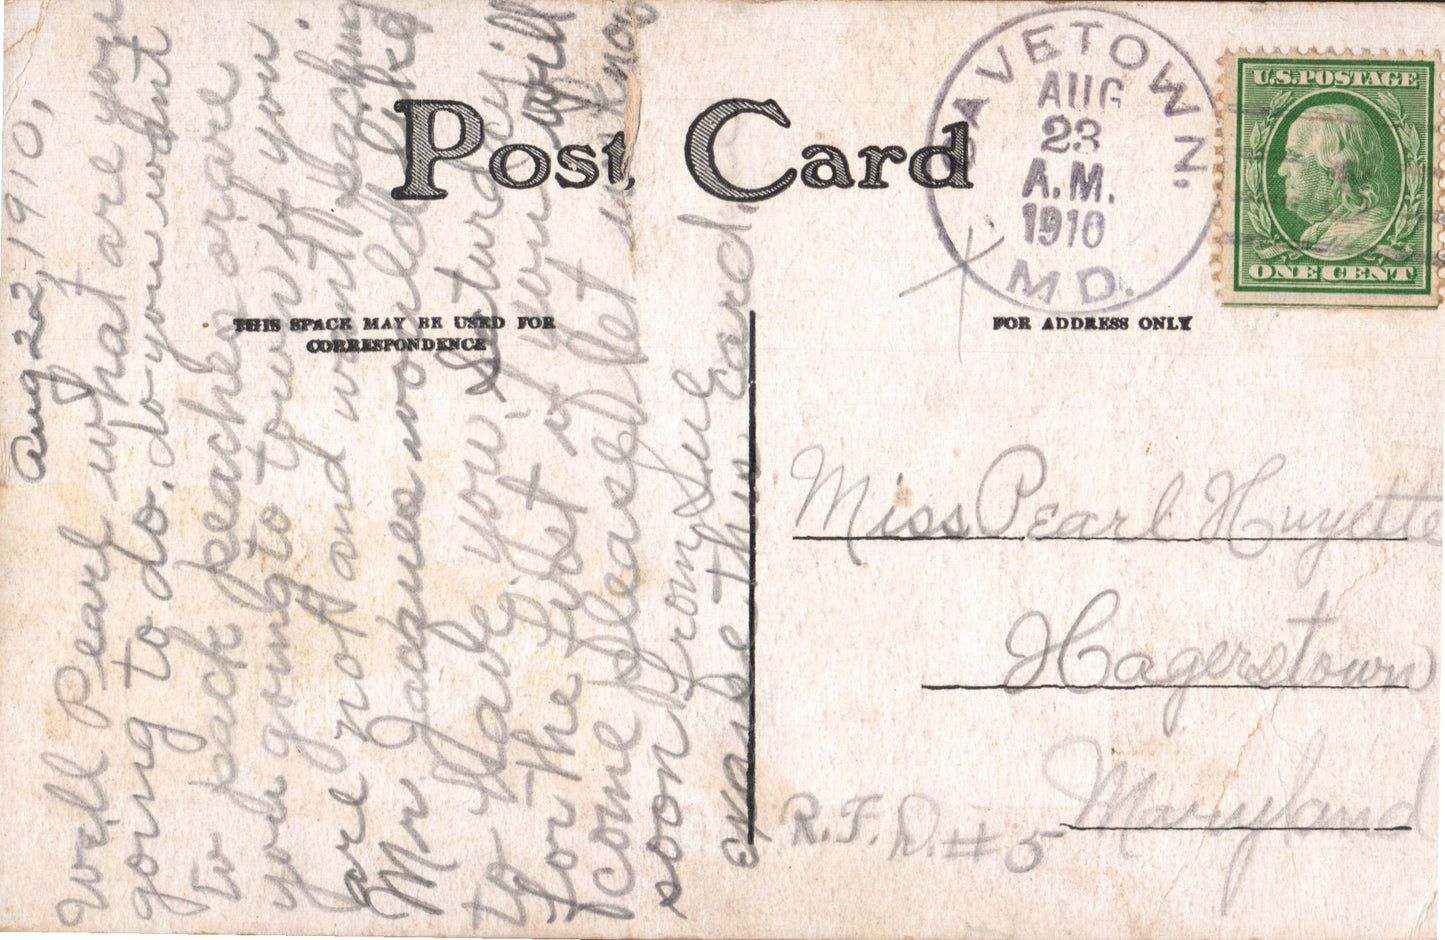 Post Card
THIS SPACE MAY BE USED FOR
CORRESPONDENCE
FOR ADDRESS ONLY
CAVETOWN.
AUG
23
A.M.
1910
MD.
U.S. POSTAGE
ONE CENT
Aug 22, 1910,
Well Pearl what are you
going to do. do you want
to pack peaches or are
you going to town if you
are not and want packing
Mr Jacques would liked
to have you. Saturday
for the first if you will
come please let us know
soon from Sue
excuse this card
Miss Pearl Huyette
Hagerstown
Maryland
R.F.D. #5